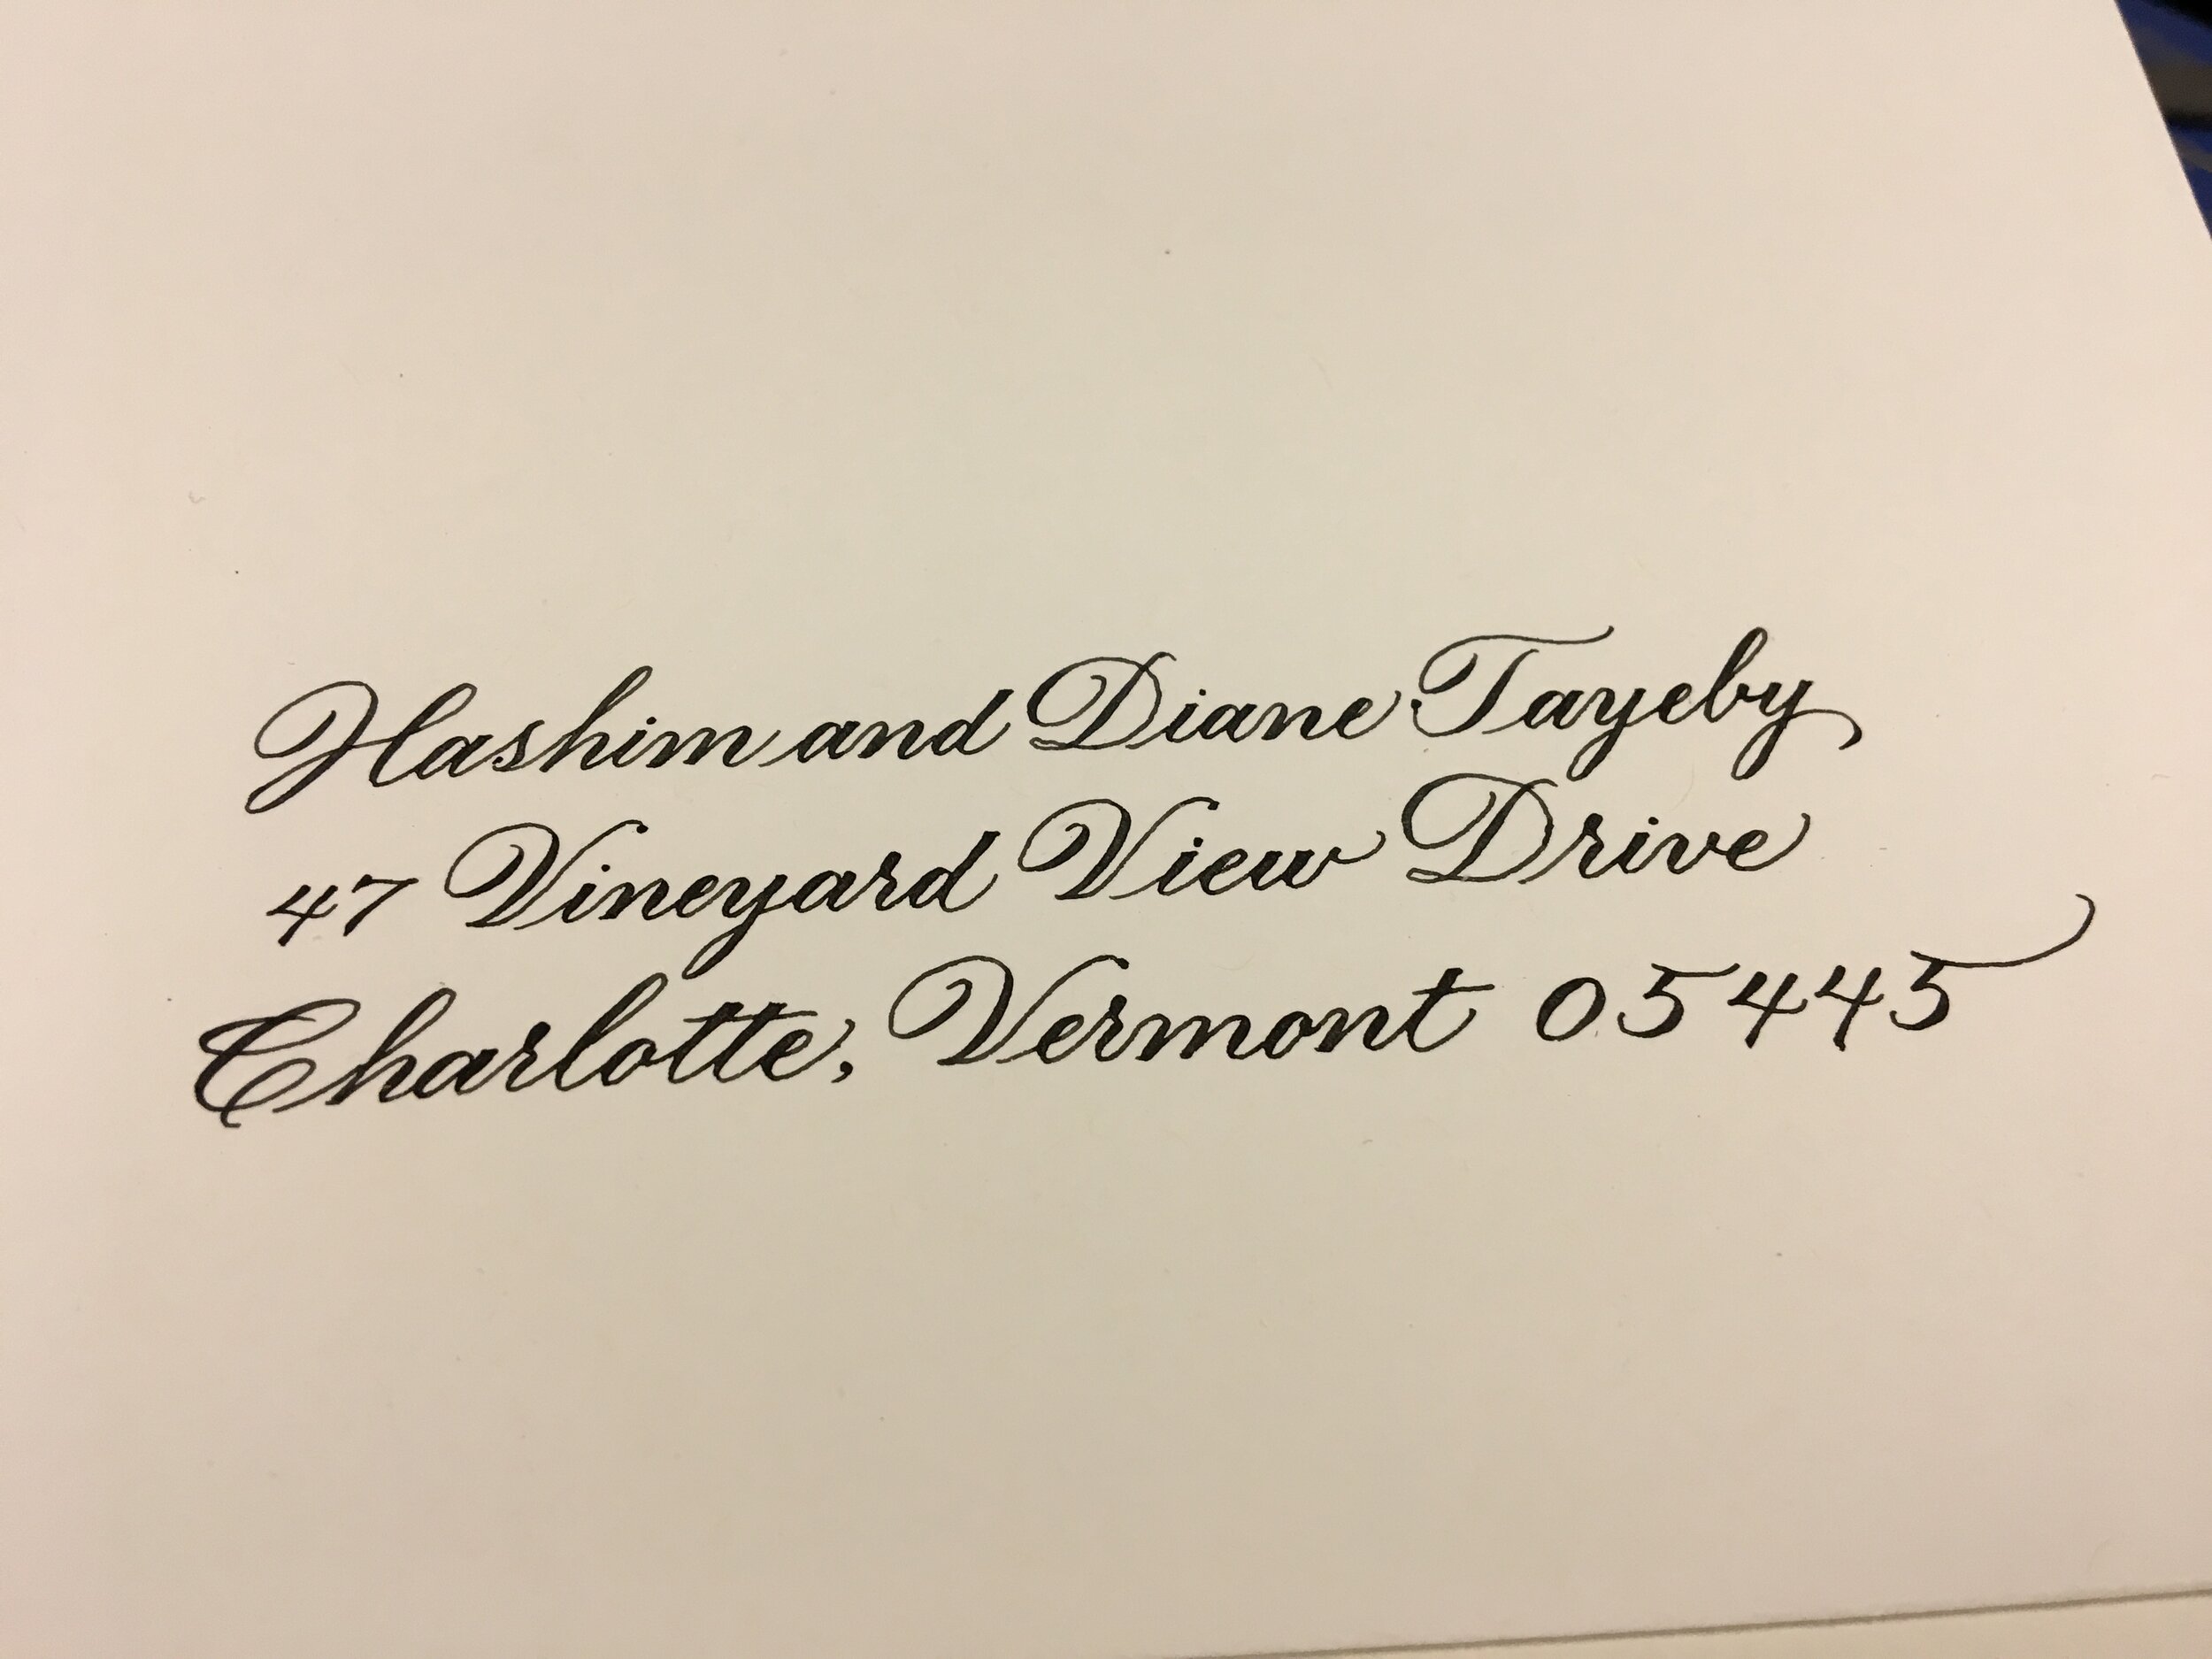 Hashim and Diane Tayeby
47 Vineyard View Drive
Charlotte, Vermont 05445